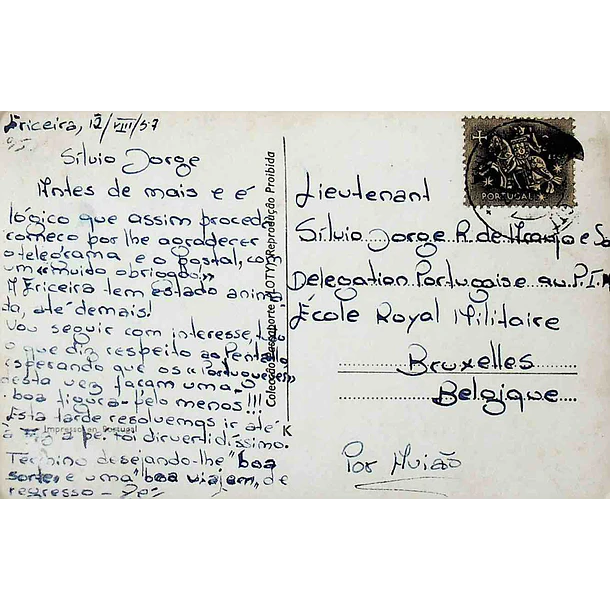 Ericeira, 12/VIII/57
Silvio Jorge
Antes de mais e é
lógico que assim proceda
começo por lhe agradecer
o telegrama e o postal, com
um «muido obrigado!»
A Ericeira tem estado anima
da, até demais!
Vou seguir com interesse, tudo
o que diz respeito ao Pentatlo
esperando que os «Portugueses»
desta vez façam uma
"boa figura" pelo menos!!!
Esta tarde resolvemos ir até
à a pé. foi divertidíssimo.
Término desejando-lhe "boa
sorte, e uma "boa viajem, de
regresso -
Colecção Passaporte (LOTY) Reprodução Proibida
Impresso en Portugal
K
PORTUGAL
Lieutenant
Silvio Jorge R. de e
Delegation Portugaise au P.I.M
École Royal Militaire
Bruxelles
Belgique
Por Avião